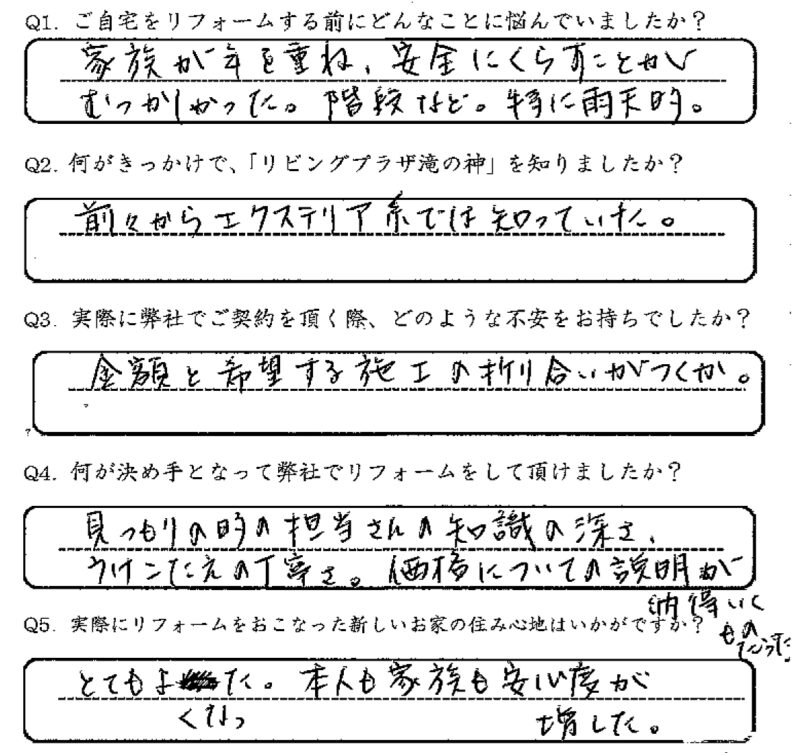 Q1. ご自宅をリフォームする前にどんなことに悩んでいましたか？
家族が年を重ね、安全にくらすことが
むつかしかった。階段など。特に雨天時。
Q2. 何がきっかけで、「リビングプラザ滝の神」を知りましたか？
前々からエクステリア系では知っていた。
Q3. 実際に弊社でご契約を頂く際、どのような不安をお持ちでしたか？
金額と希望する施工の折り合いがつくか。
Q4. 何が決め手となって弊社でリフォームをして頂けましたか？
見つもりの時の担当さんの知識の深さ、
うけこたえの丁寧さ。価格についての説明が
納得いく
もの
だった
Q5. 実際にリフォームをおこなった新しいお家の住み心地はいかがですか？
とてもよ た。本人も家族も安心度が
くなっ 増した。